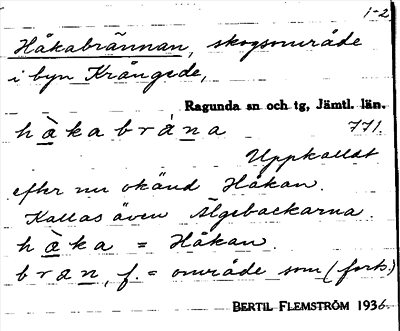 1-2
Håkabrännan, skogsområde
i byn Krångede,
Ragunda sn och tg, Jämtl. län.
hàkabràna 771.
Uppkallat
efter nu okänd Håkan.
Kallas även Älgebackarna.
hàka = Håkan.
bran, f = område som (forts.)
BERTIL FLEMSTRÖM 1936.